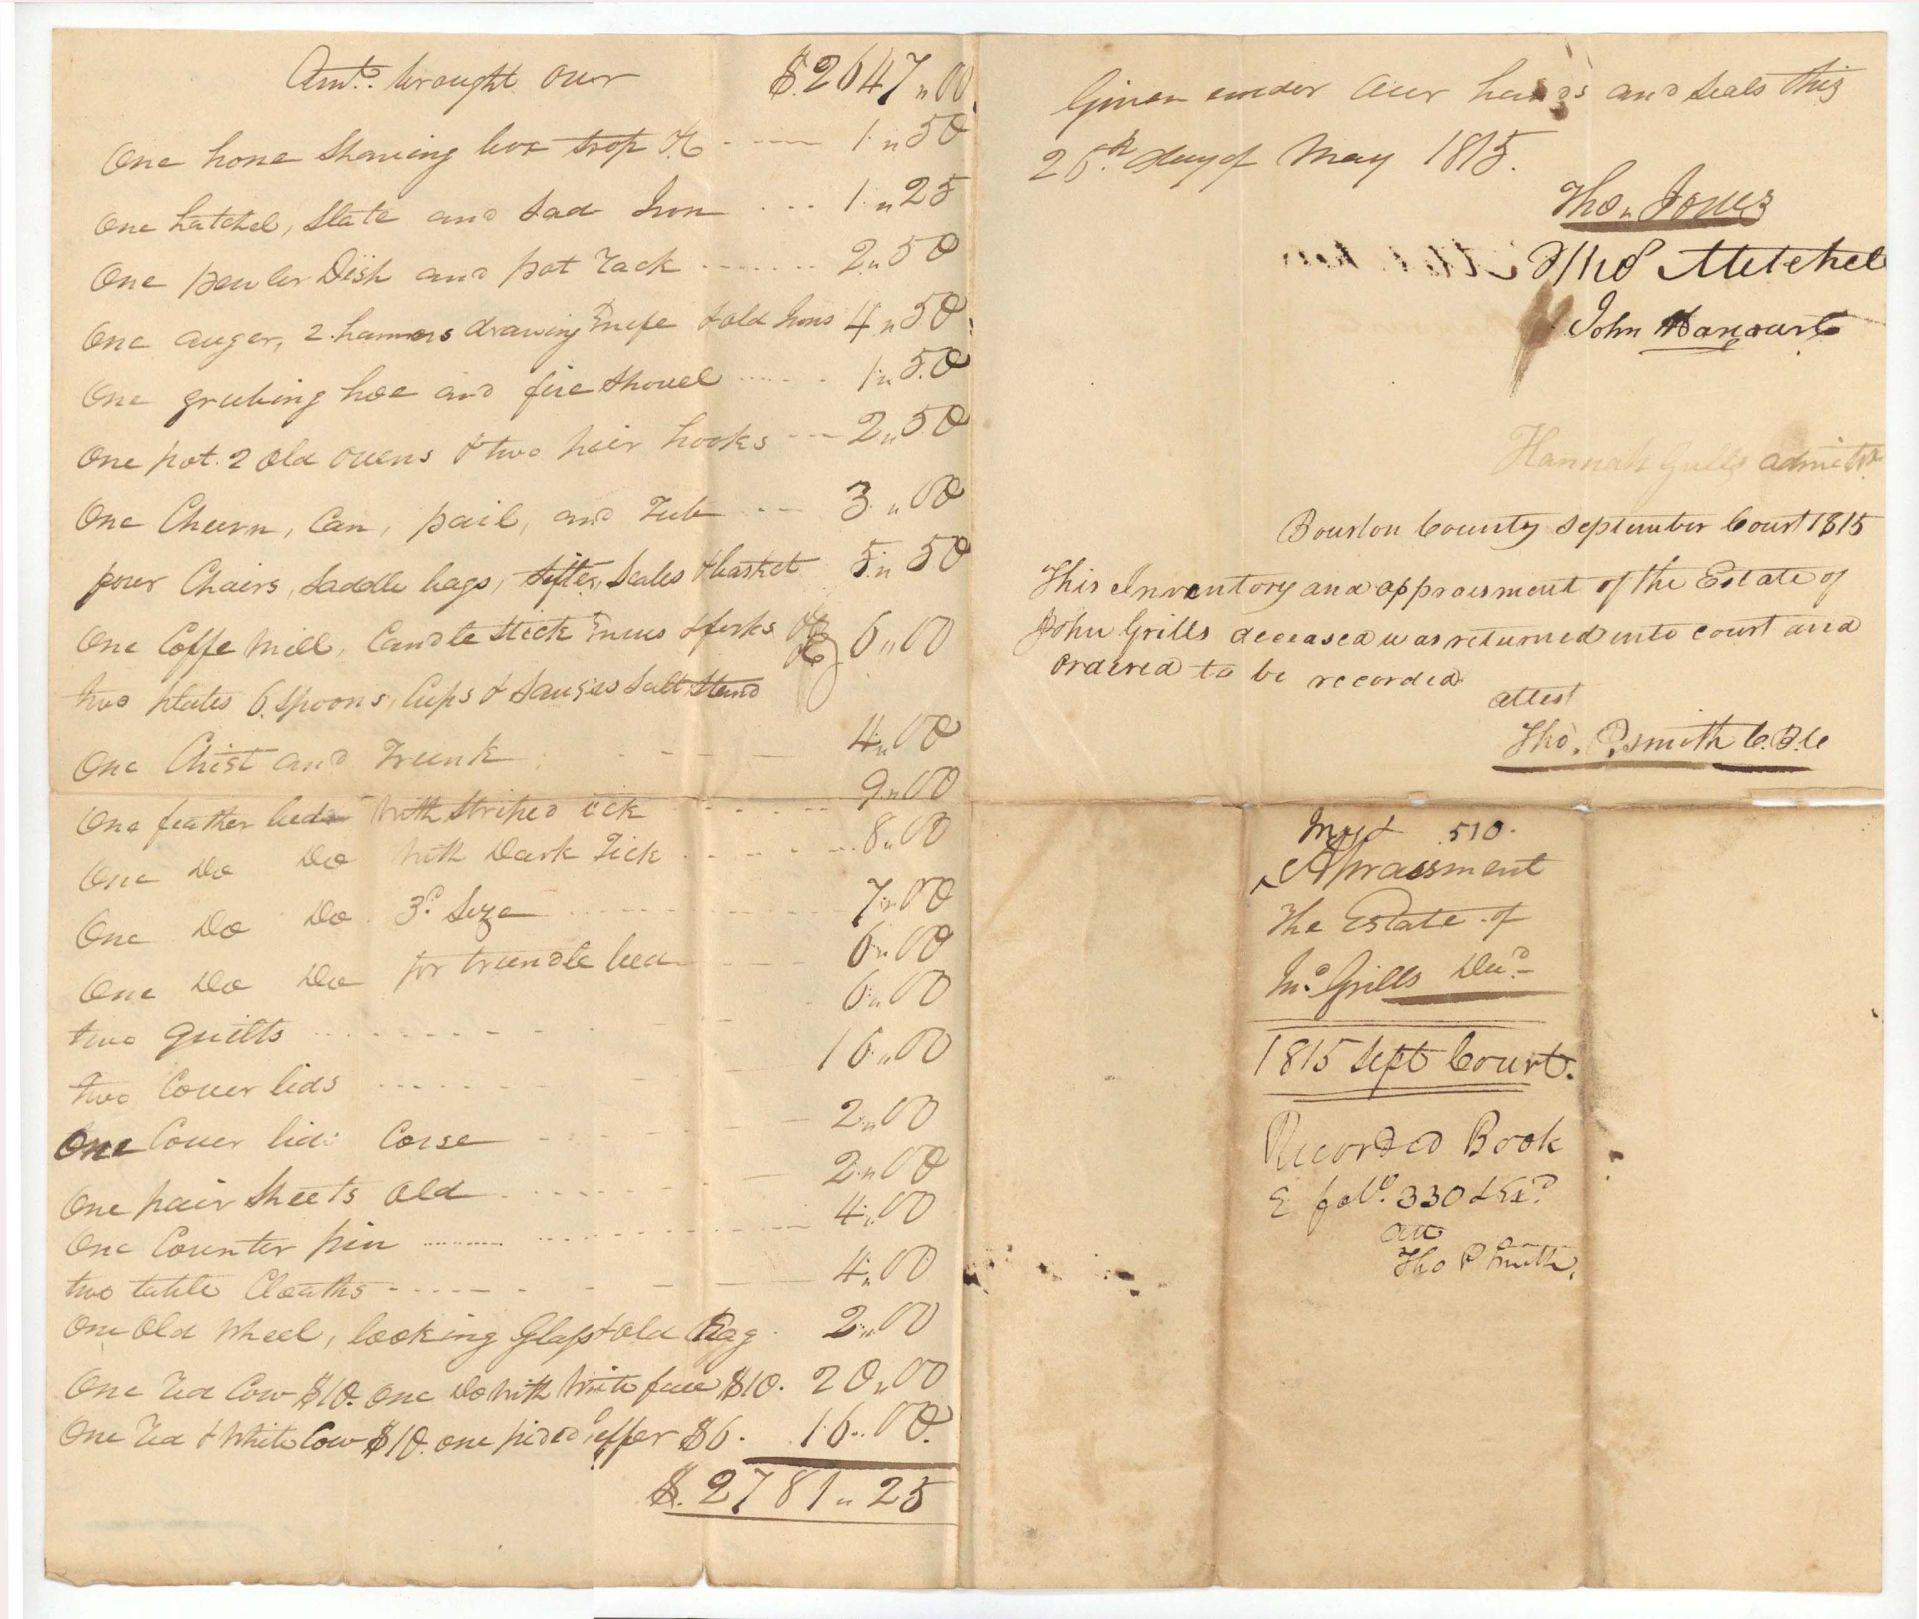 Amt. brought over $2647"00
One hone Shaving box strop &c 1"50
One hatchel, Slate and Sad Iron 1"25
One pewter Dish and pot rack 2"50
One auger, 2 hammers drawing Knife & old Irons 4"50
One grubing hoe and fire Shovel 1"50
One pot. 2 old ovens & two pair hooks 2"50
One Churn, Can, pail, and Tub 3"00
four Chairs, Saddle bags, sifter, Scales & basket 5"50
One Coffe Mill, Candle Stick Knives & forks &c 6"00
two plates 6 Spoons, Cups & Sauses Salt Stand
One Chist and Trunk 4"00
One feather bed with Striped tick 9"00
One Do Do with Dark Tick 8"00
One Do Do 3d. Size 7"00
One Do Do for trundle bed 6"00
two quilts 6"00
two Cover lids 16"00
One Cover lid Corse 2"00
One pair Sheets old 2"00
One Counter pin 4"00
two table Cloaths 4"00
One old wheel, looking Glass & old Bag 2"00
One red Cow $10. One Do with white face $10. 20"00
One red & white Cow $10. one pided heffer $6. 16"00
$2781"25
Given under our hands and Seals this
26th. day of May 1815.
Tho" Jones
Tho s Mitchel
John Hancourt
Hannah Grills admix
Bourbon County September Court 1815
This Inventory and appraisment of the Estate of
John Grills deceased was returned into court and
ordered to be recorded
attest
Tho. P. Smith C.B.C
510.
Apraissment
The Estate of
Jno. Grills Decd.
1815 Sept Court.
Recorded Book
E folo. 330 & Exd
att
Tho P Smith.